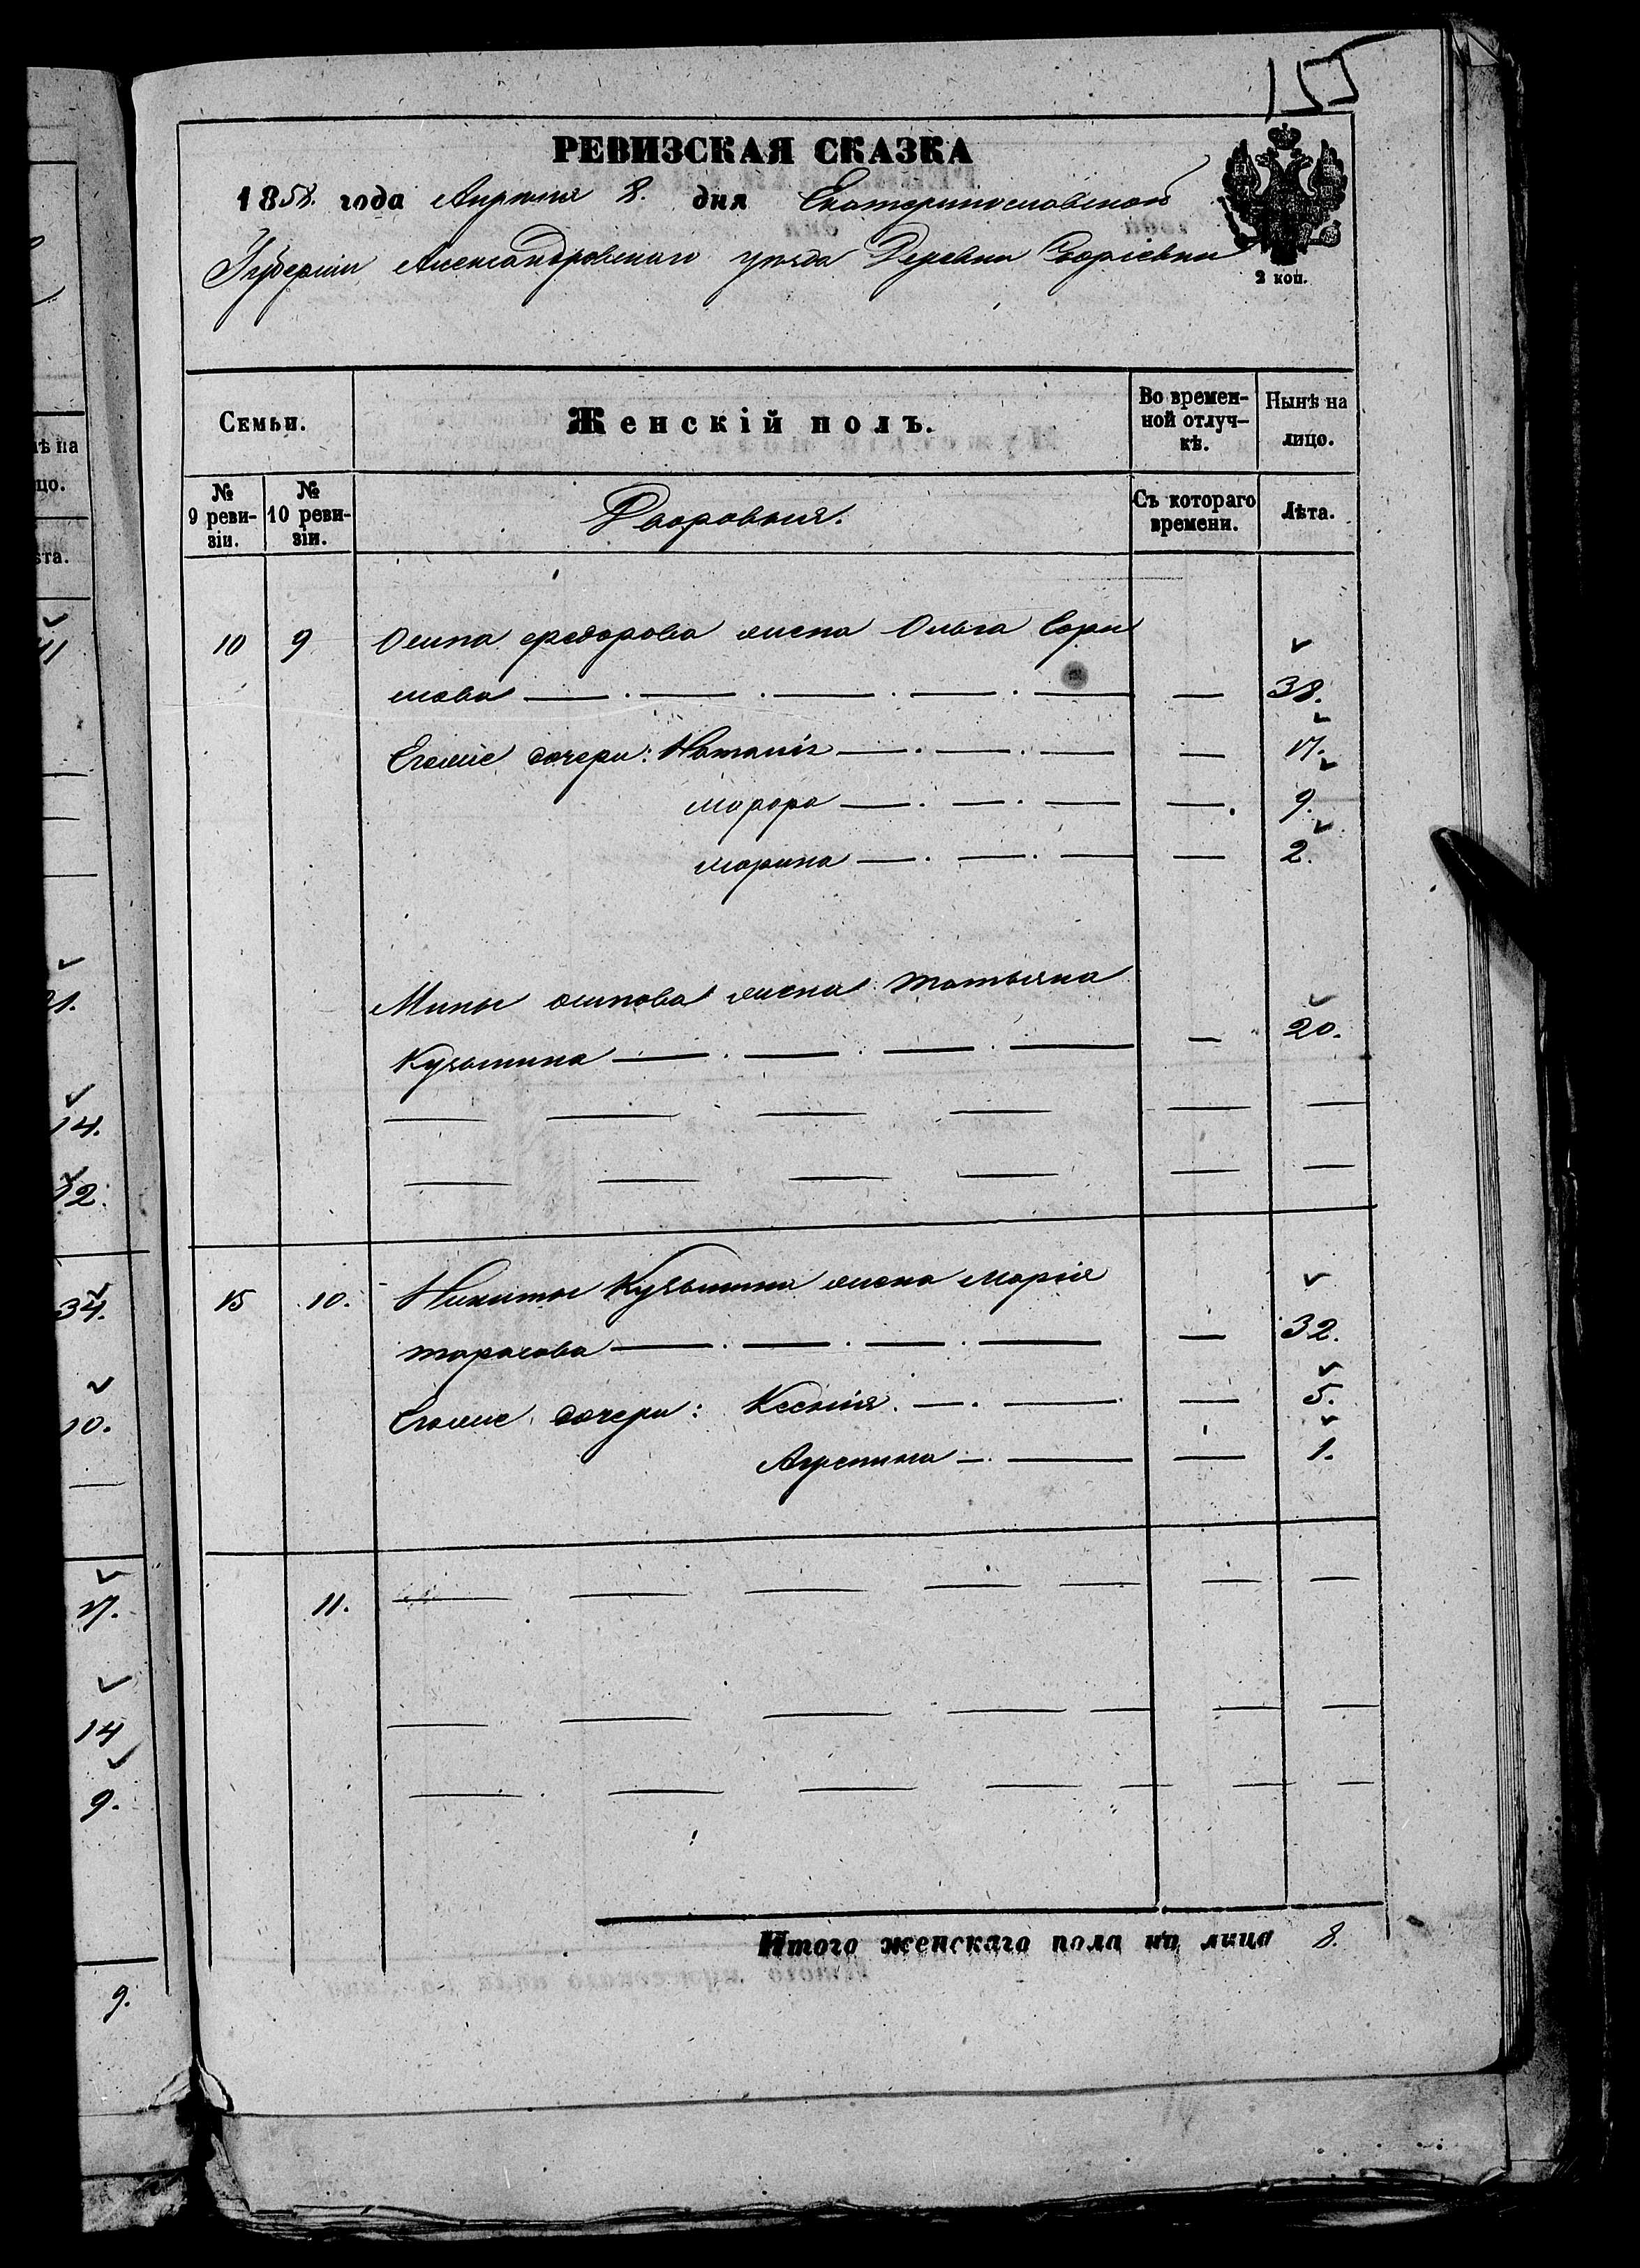 155
РЕВИЗСКАЯ СКАЗКА
1858. года Апреля 8. дня Екатеринославской
Губернии Александровскаго уѣзда Деревни
2 коп.
Семьи.
Женскій полъ.
Во времен-
ной отлуч-
кѣ.
Нынѣ на
лицо.
№
9 реви-
зіи.
№
10 реви-
зіи.
Дворовыя.
Съ котораго
времени.
Лѣта.
10 9 Осипа Федорова жена Ольга
мова — — 38.
Егожие дочери: Наталія — — 17.
Марфа — — 9.
Марина — — 2.
Мины осипова жена Татьяна
Кузьмина — — 20.
15 10. Никиты Кузьмина жена Марія
тарасова — — 32.
Егожие дочери: Ксенія. — — 5.
Агрепина — — 1.
11.
Итого женскаго пола на лицо 8.
ѣ на
цо.
ѣта.
14.
34.
10.
17.
14
9.
9.